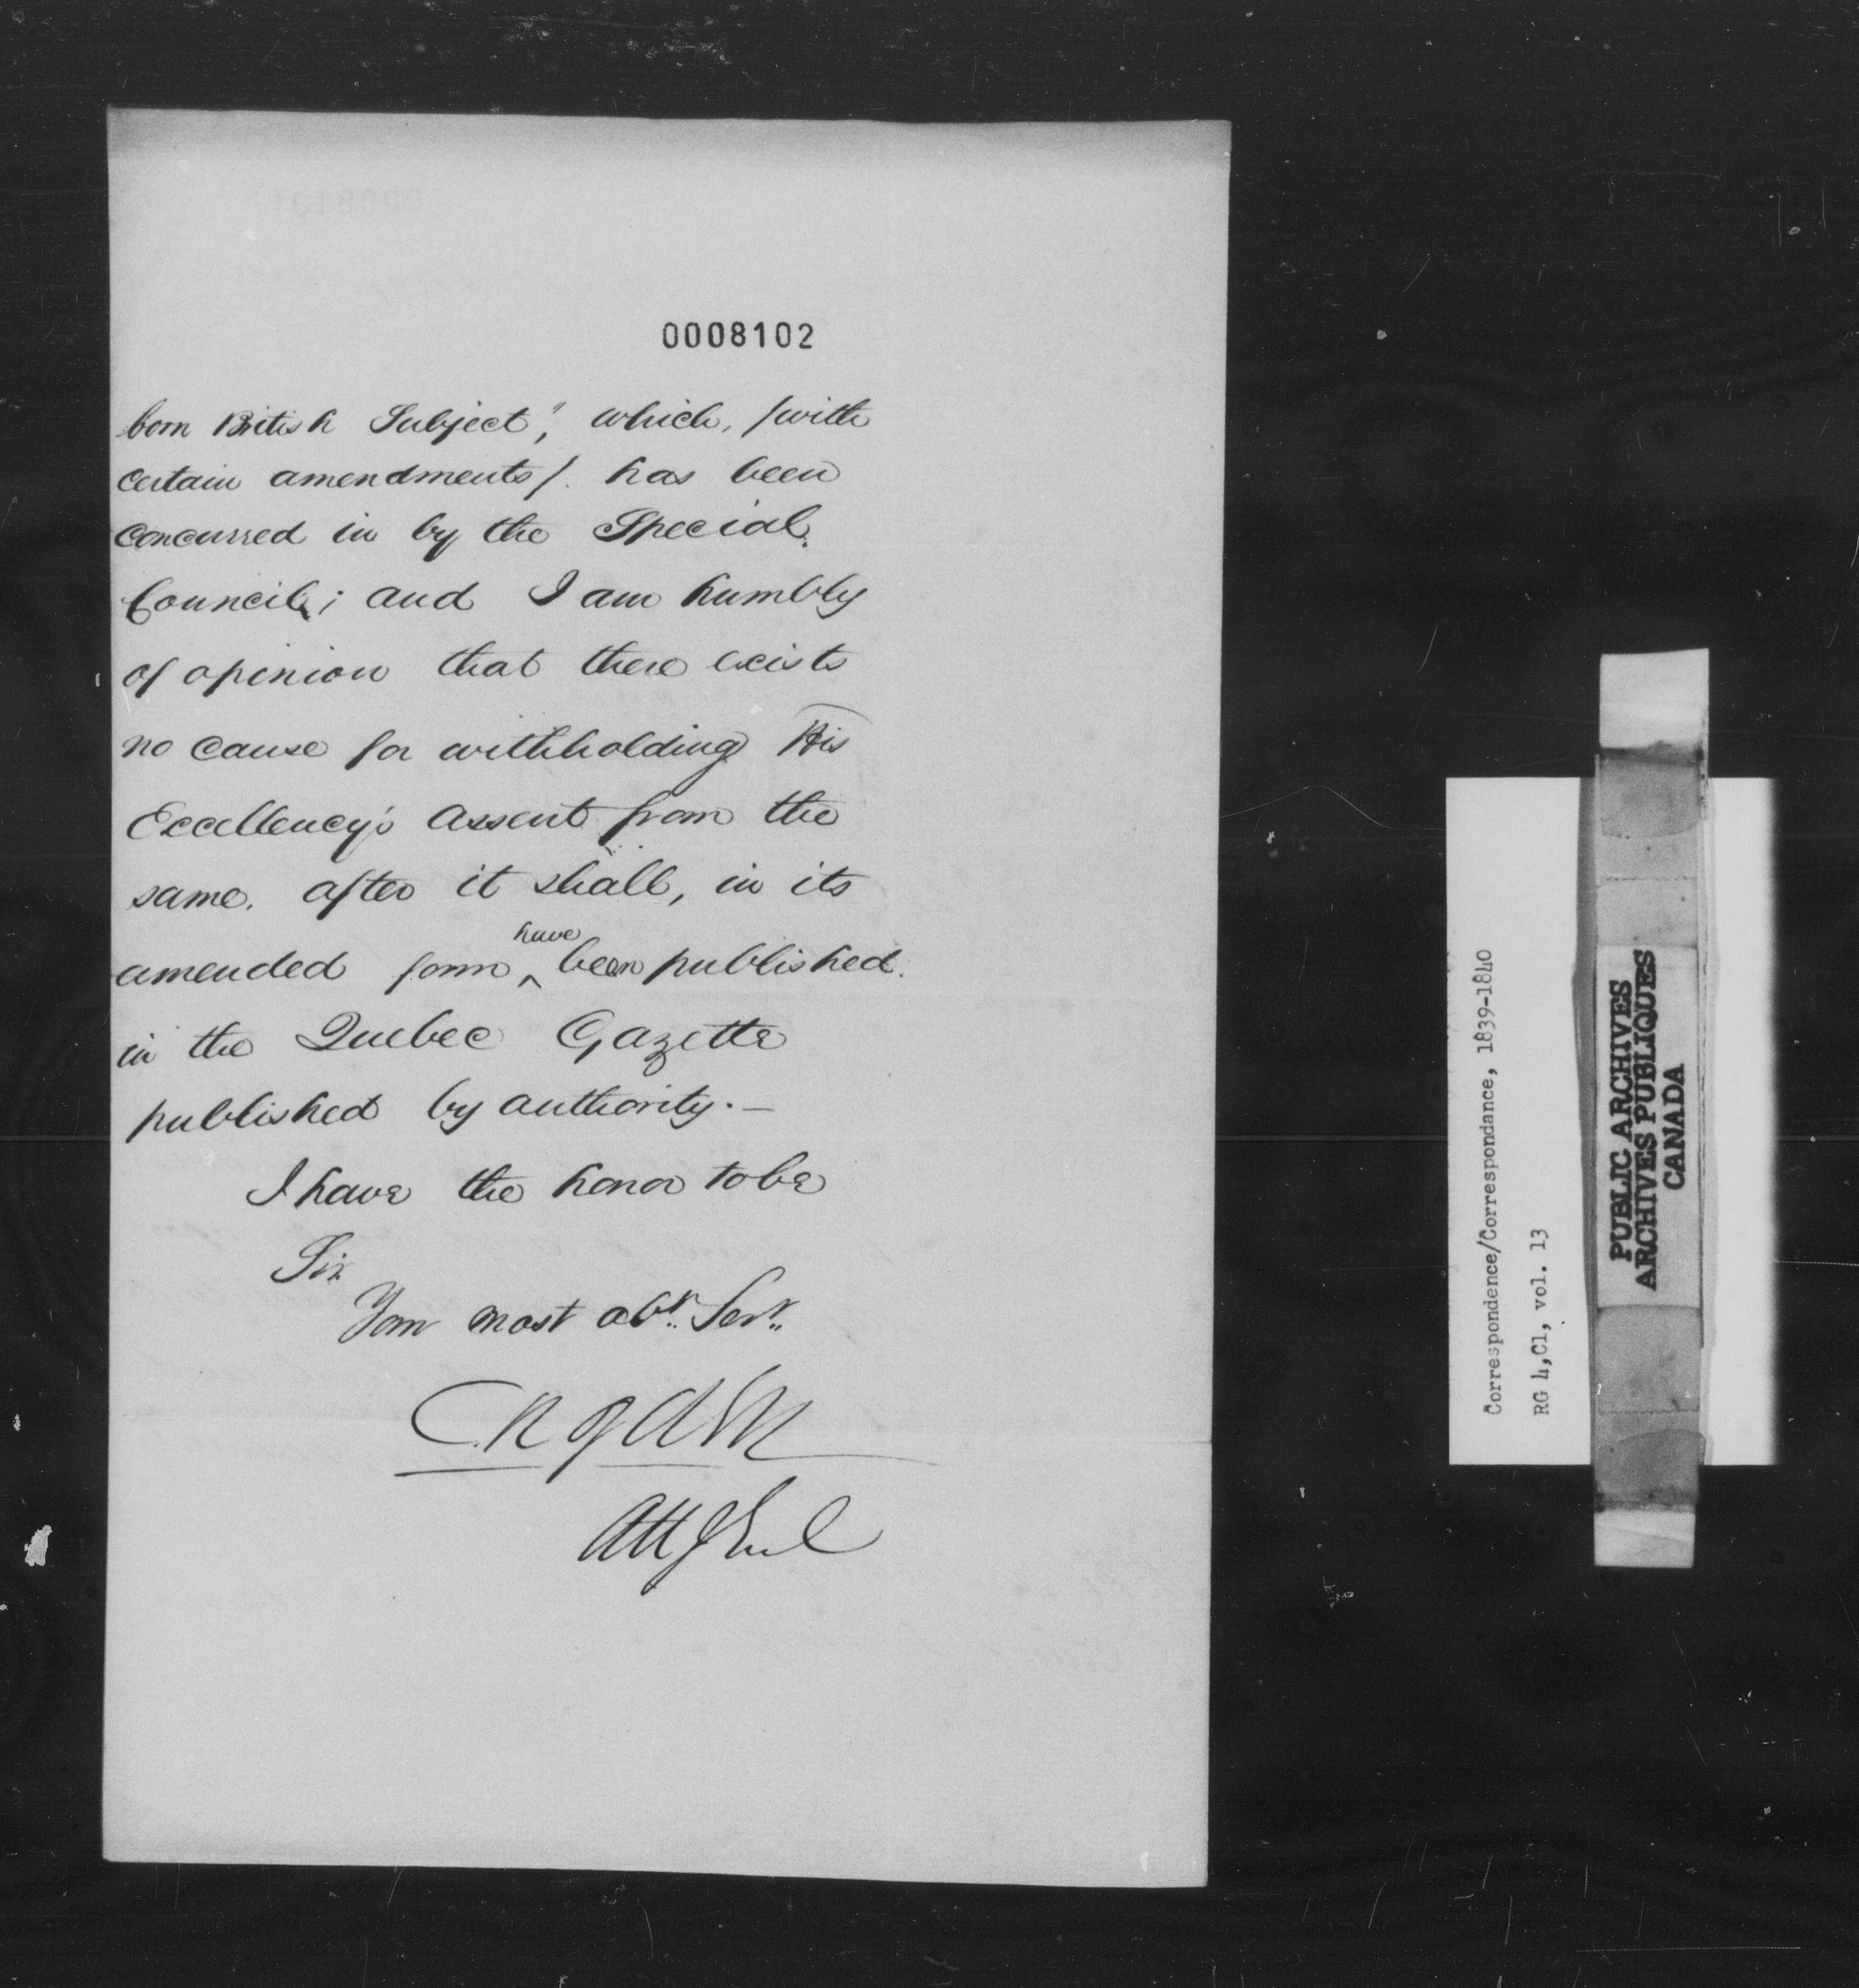 0008102
born British Subject", which, /with
certain amendments/. has been
concurred in by the Special
Council; and I am humbly
of opinion that there exists
no cause for withholding His
Excellency's assent from the
same. after it shall, in its
amended form ^have been published.
in the Quebec Gazette
published by authority.—
I have the honor to be
Sir
Your most obt. Servt.
Atty Genl
Correspondence/Correspondance, 1839-1840
RG 4,C1, vol. 13
PUBLIC ARCHIVES
ARCHIVES PUBLIQUES
CANADA